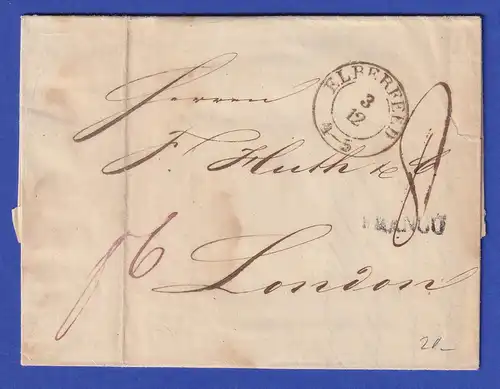 ELBERFELD
3
12
4-5
Herren
F. Huth & C
8
FRANCO
p6
London
20-